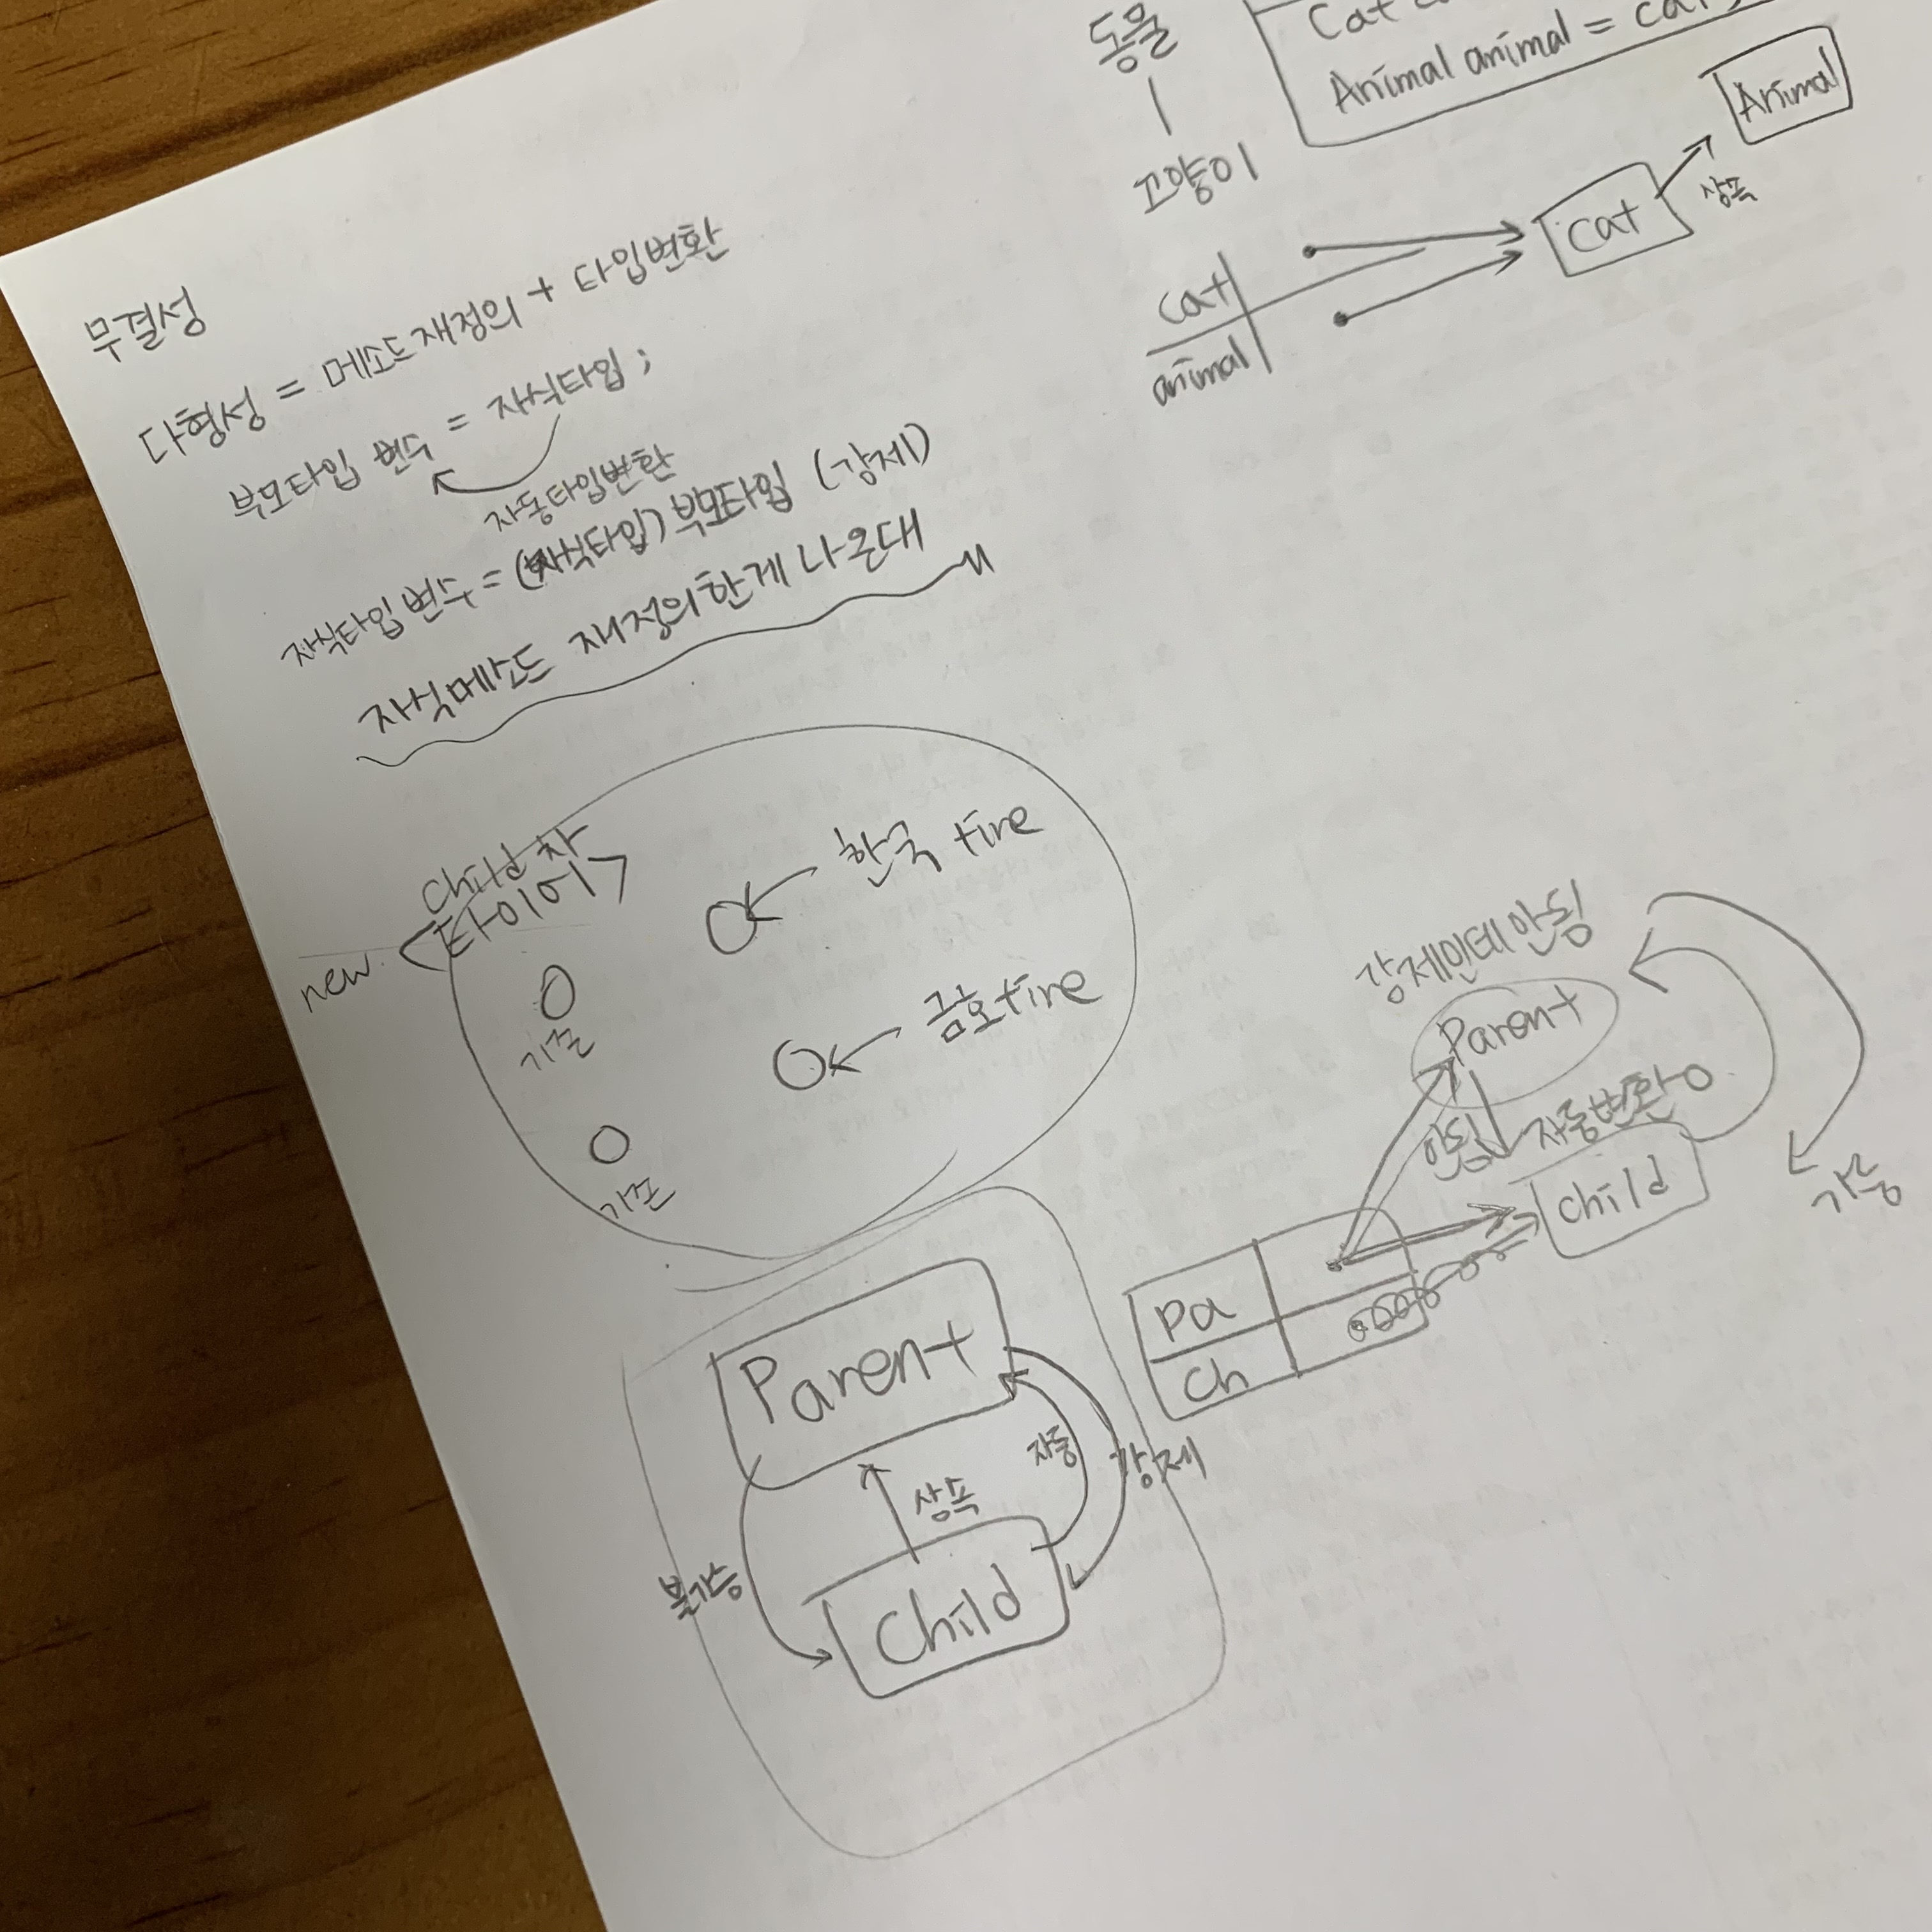 무결성
다형성 = 메소드 재정의 + 타입변환
부모타입 변수 = 자식타입 ;
자동타입변환
자식타입 변수 = (자식타입) 부모타입 (강제)
자식메소드 재정의한게 나온대
동물
고양이
Cat
Animal animal = cat;
cat
animal
Cat
상속
Animal
child 차
new <타이어>
기존
기존
한국 tire
금호 tire
강제인데 안됨
Parent
안됨
자동변환 O
child
가능
Pa
Ch
Parent
상속
자동
강제
불가능
Child